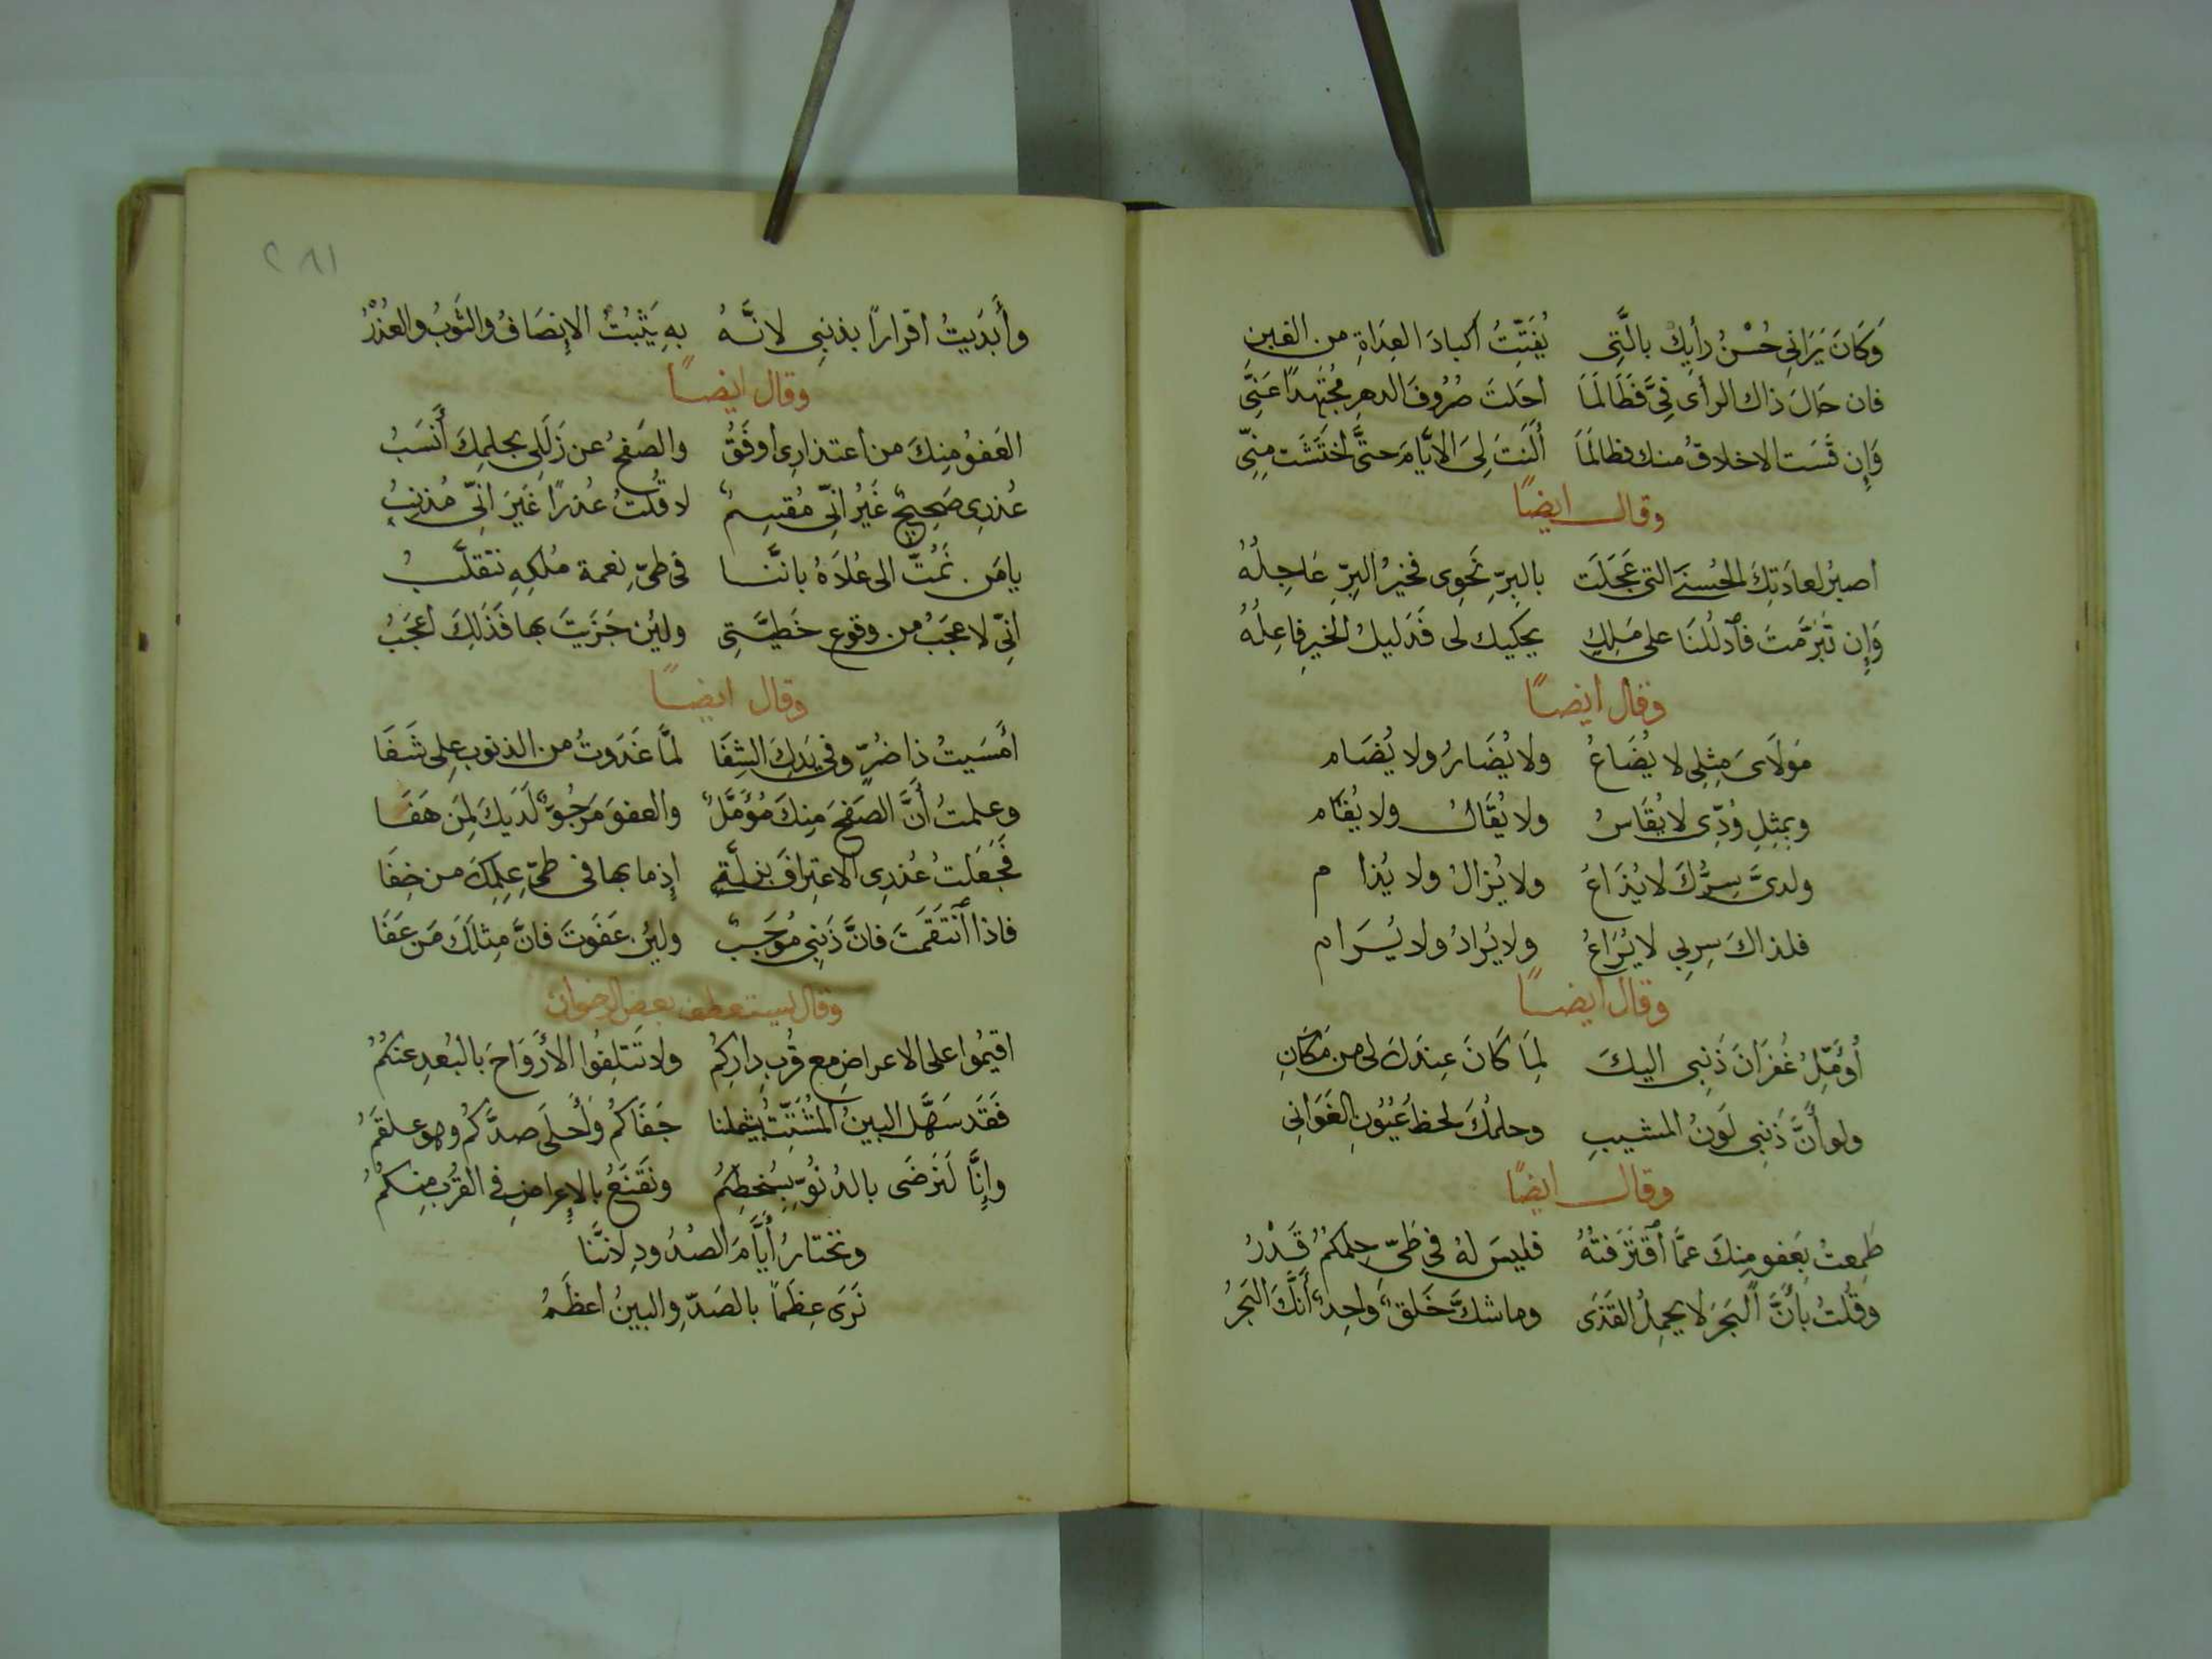 وَكَانَ يَرَانِى حُسْنُ رأيِكَ بالَّتِى يُفَتِّتُ اكبادَ العِدَاةِ من الغبن
فان حَالَ ذاك الرأى فِىَّ فَطَالَمَا احَلتَ صُرُوفَ الدهرِ مُجتَهِدًا عَنِّى
وَإِن قَسَت الاخلاقُ منك فطالَمَا أَلَنتَ لِىَ الايَّامَ حتَّى اختَشَت مِنِّى
وقال ايضًا
اصبرُ لعادَتِكَ الحُسنَى التى عَجَلَت بالبِرِّ نَحوِى فخيرُ البِرِّ عَاجِلُهُ
وَإِن تَبَرَّمتَ فاَدلُلنَا على مَلِكٍ يحكيك لى فَدَليلُ الخيرِ فاعِلُهُ
وقال ايضًا
مَولَاىَ مِثِلِى لا يُضَاعُ ولا يُضَارُ ولا يُضَام
وبمِثِلِ وُدِّى لا يُقَاسُ ولا يُقَالُ ولا يُقَام
ولدىَّ سِرُّكَ لا يُذَاعُ ولا يُزالُ ولا يُذا م
فلذاكَ سِربِي لا يُرَاعُ ولا يُرادُ ولا يُرَام
وقال ايضًا
أُؤَمِّلُ غُفرَانَ ذَنبِى اليكَ لِمَا كَانَ عِندَكَ لى من مَكَانِ
ولو أَنَّ ذَنبِى لَونُ المشيبِ وحلمُكَ لحظُ عُيُونِ الغَوَانِى
وقال ايضًا
طَمِعتُ بِعَفوٍ مِنكَ عمَّا اَقتَرَفتُهُ فليسَ لهُ فى طَىِّ حِلمِكُمُ قَدْرُ
وقُلتُ بأَنَّ البَحرَ لا يحمِلُ القَذَى وما شكَّ خَلقٌ وَاحِدٌ أَنَّكَ البَحرُ
٢٨١
وأَبدَيتُ اقرارًا بذنبِى لانَّهُ بهِ يَثبُتُ الإنصَافُ والثَوبُ والعُذْرُ
وقال ايضًا
العَفوُ مِنكَ من اعتذارِى أوفَقُ والصَفحُ عن زَلَلِى بحلمِكَ أَنسَبُ
عُذرِى صَحِيحٌ غَيرُ انِّى مُقسِمٌ لا قُلتُ عُذرًا غَيرَ انِّى مُذنِبُ
يامَن نَمُتُّ الى عُلَاهُ بانَّنا فى طىِّ نعمة مُلكِهِ نَتقلَّبُ
انّى لاعجَبُ من وقوع خَطيَّتِى ولئِن جَزَيتَ بها فَذَلِكَ اعجَبُ
وقال ايضًا
امسَيتُ ذا ضُرٍّ وفى يَدِكَ الشِفَا لمَّا غَدَوتُ من الذنوب على شَفَا
وعلمتُ أَنَّ الصَفحَ مِنكَ مُؤَمَّلٌ والعفوَ مَرجُوٌّ لَدَيكَ لِمَن هَفَا
فَجَعَلتُ عُذرِى الاعتِرافَ بزلّةٍ إذ ما بها فى طىِّ عِلمِكَ من خِفَا
فاذا اَنتَقَمتَ فانَّ ذَنبِى مُوجَبٌ ولئِن عَفَوتَ فانَّ مِثلَكَ مَن عَفَا
وقال يستعطف بعض الاخوان
اقيمُوا على الاعراضِ مع قُربِ دارِكُم ولا تَتلِفُوا الأَروَاحَ بالبُعدِ عنكُمُ
فَقَد سَهَّلَ البينُ المُشَتِّتُ شملنا جَفَاكُم وَأَحلَى صدَّكُم وهو علقَمُ
وإنَّا لَنَرضَى بالدُنُوِّ بِسُخطِكُم ونَقنَعُ بالإعراضِ فى القُربِ مِنكُمُ
ونختارُ أيَّامَ الصُدُودِ لانَّنا
نَرَى عِظَمًا بالصَدِّ والبينُ اعظَمُ